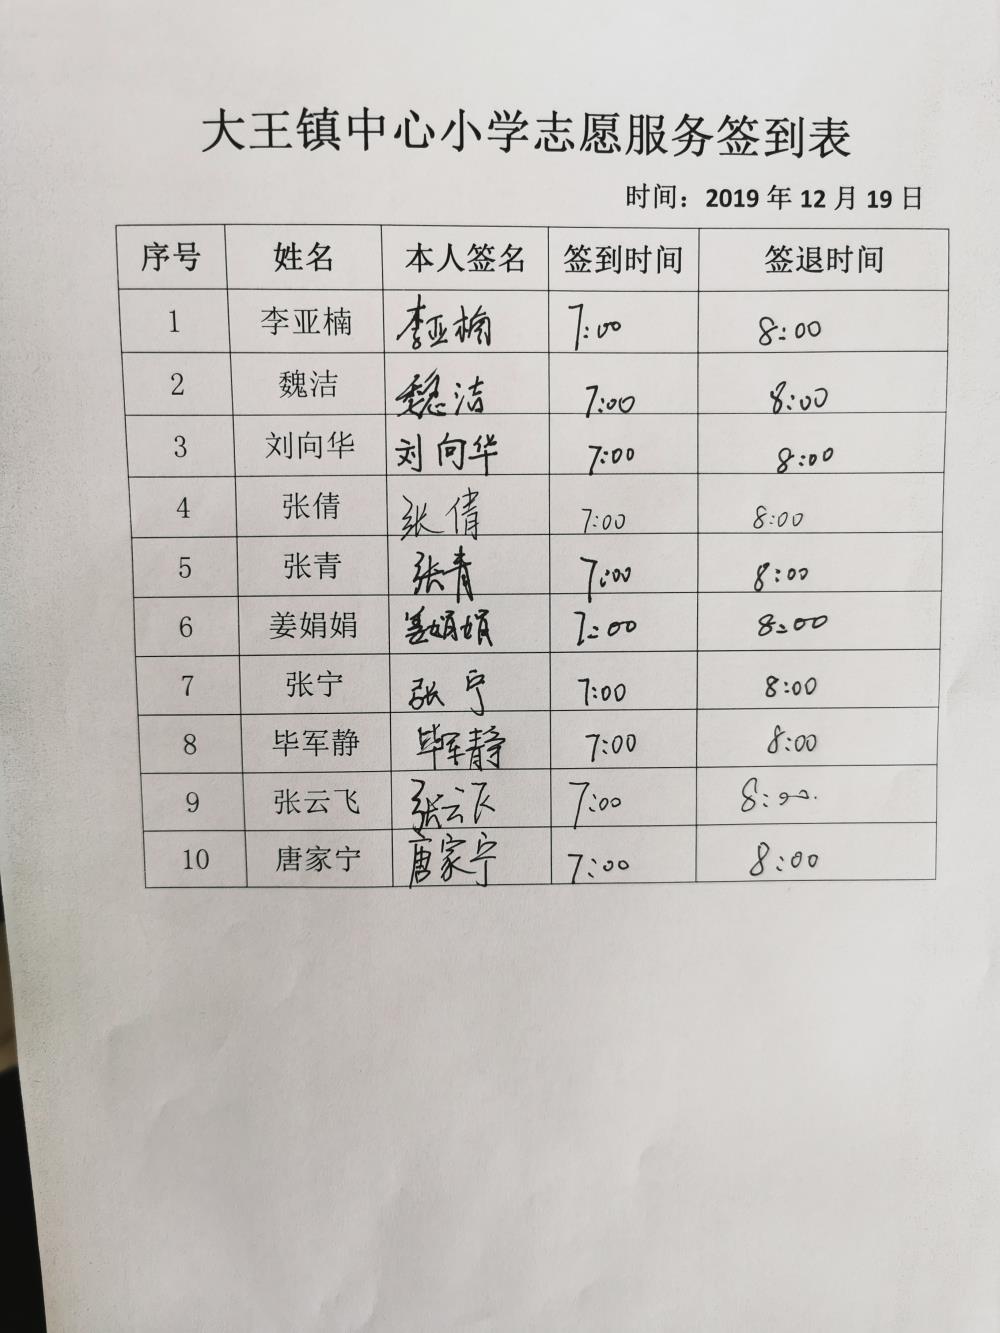 大王镇中心小学志愿服务签到表
时间：2019 年 12 月 19 日
序号 姓名 本人签名 签到时间 签退时间
1 李亚楠 李亚楠 7:00 8:00
2 魏洁 魏洁 7:00 8:00
3 刘向华 刘向华 7:00 8:00
4 张倩 张倩 7:00 8:00
5 张青 张青 7:00 8:00
6 姜娟娟 姜娟娟 7:00 8:00
7 张宁 张宁 7:00 8:00
8 毕军静 毕军静 7:00 8:00
9 张云飞 张云飞 7:00 8:00.
10 唐家宁 唐家宁 7:00 8:00